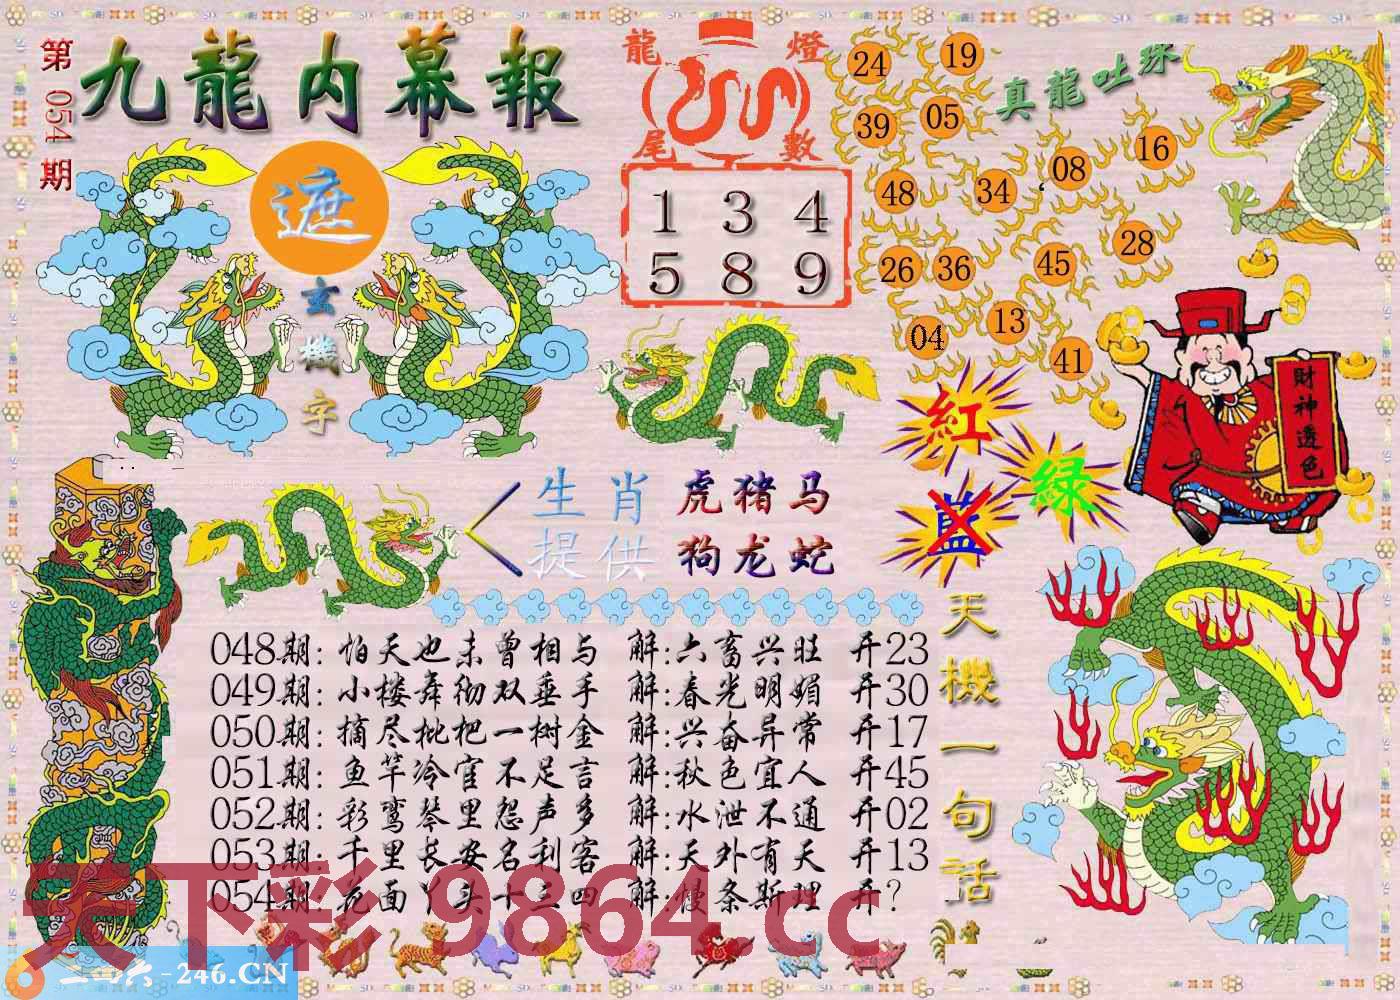 第054期
九龍内幕報
遮
玄機字
龍燈
尾數
1 3 4
5 8 9
24 19
39 05
48 34 08 16
26 36 45 28
04 13 41
真龍吐珠
財神透色
紅
绿
藍
生肖 虎猪马
提供 狗龙蛇
天機一句話
048期: 怕天也未曾相与 解:六畜兴旺 开23
049期: 小楼舞彻双垂手 解:春光明媚 开30
050期: 摘尽枇杷一树金 解:兴奋异常 开17
051期: 鱼竿冷官不足言 解:秋色宜人 开45
052期: 彩鸾琴里怨声多 解:水泄不通 开02
053期: 千里长安名利客 解:天外有天 开13
054期: 花面丫头十三四 解:慢条斯理 开?
天下彩 9864.cc
二四六-246.CN